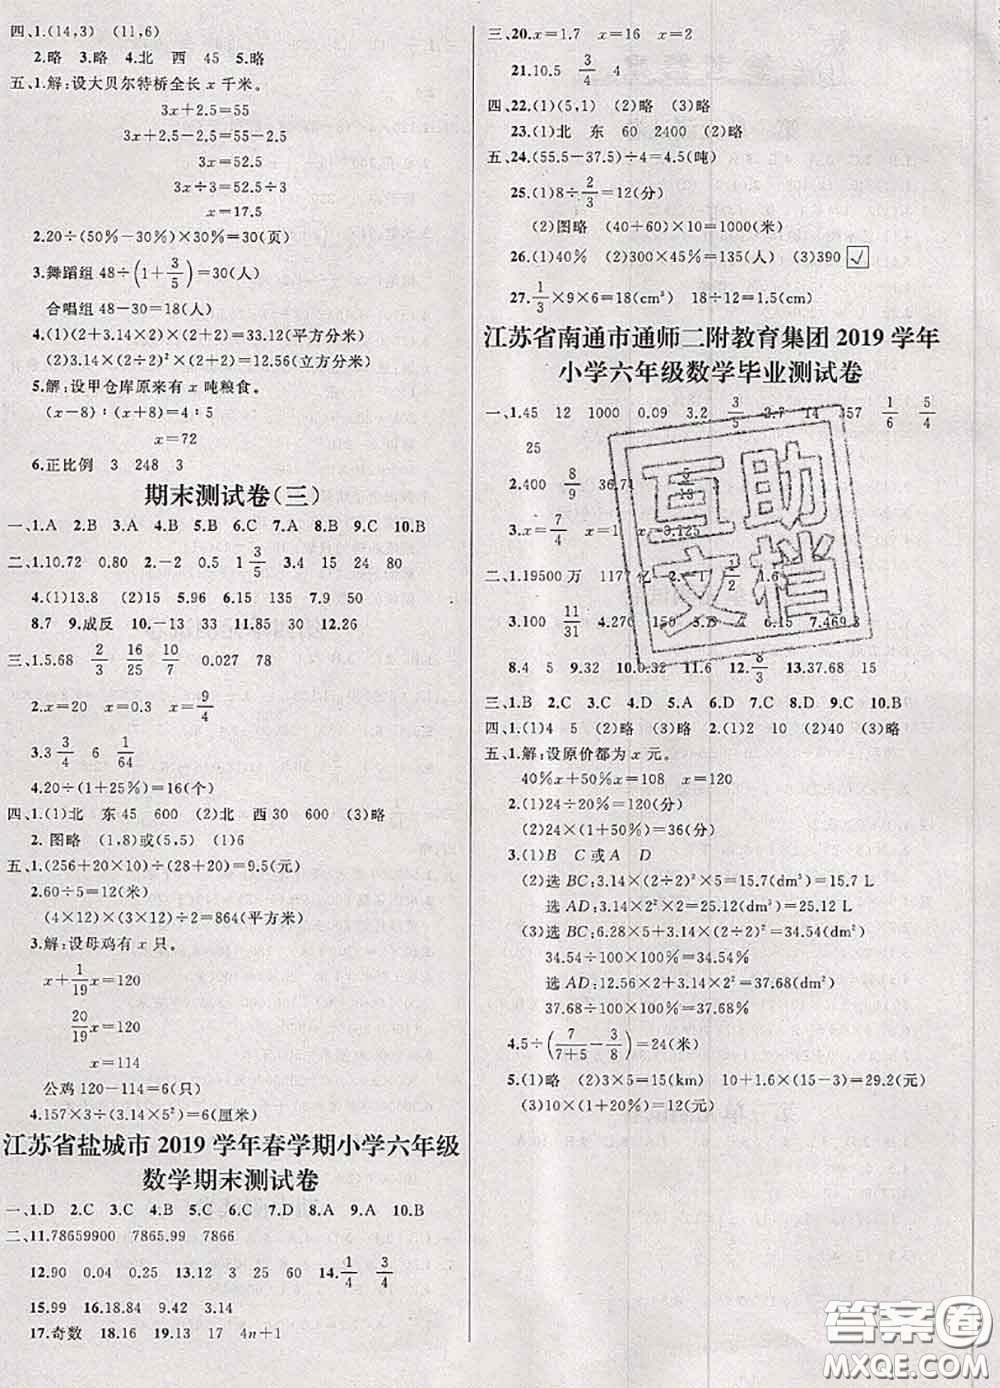 四、1.(14,3) (11,6)
2.略 3.略 4.北 西 45 5.略
五、1.解:设大贝尔特桥全长 x 千米。
3x+2.5=55
3x+2.5-2.5=55-2.5
3x=52.5
3x÷3=52.5÷3
x=17.5
2.20÷(50%-30%)×30%=30(页)
3.舞蹈组 48÷(1+3/5)=30(人)
合唱组 48-30=18(人)
4.(1)(2+3.14×2)×(2×2)=33.12(平方分米)
(2)3.14×(2÷2)²×(2×2)=12.56(立方分米)
5.解:设甲仓库原来有 x 吨粮食。
(x-8):(x+8)=4:5
x=72
6.正比例 3 248 3
期末测试卷(三)
一、1.A 2.B 3.A 4.B 5.B 6.C 7.A 8.B 9.C 10.B
二、1.10.72 0.80 2.-2 0.5 1 3/5 3.4 15 24 80
4.(1)13.8 (2)15 5.96 6.15 135 7.9 50
8.7 9.成反 10.-13 33 11.85 30 12.26
三、1.5.68 2/3 16/25 10/7 0.027 78
2.x=20 x=0.3 x=9/4
3.3 3/4 6 1/64
4.20÷(1+25%)=16(个)
四、1.(1)北 东 45 600 (2)北 西 30 600 (3)略
2. 图略 (1,8)或(5,5) (1)6
五、1.(256+20×10)÷(28+20)=9.5(元)
2.60÷5=12(米)
(4×12)×(3×12)÷2=864(平方米)
3.解:设母鸡有 x 只。
x+1/19x=120
20/19x=120
x=114
公鸡 120-114=6(只)
4.157×3÷(3.14×5²)=6(厘米)
江苏省盐城市 2019 学年春学期小学六年级
数学期末测试卷
一、1.D 2.C 3.C 4.B 5.C 6.C 7.D 8.A 9.A 10.B
二、11.78659900 7865.99 7866
12.90 0.04 0.25 13.12 3 25 60 14.1/4 3/4
15.99 16.18.84 9.42 3.14
17.奇数 18.16 19.13 17 4n+1
三、20.x=1.7 x=16 x=2
21.10.5 3/4 4
四、22.(1)(5,1) (2)略 (3)略
23.(1)北 东 60 2400 (2)略
五、24.(55.5-37.5)÷4=4.5(吨)
25.(1)8÷2/3=12(分)
(2)图略 (40+60)×10=1000(米)
26.(1)40% (2)300×45%=135(人) (3)390 ✓
27.1/3×9×6=18(cm³) 18÷12=1.5(cm)
江苏省南通市通师二附教育集团 2019 学年
小学六年级数学毕业测试卷
一、1.45 12 1000 0.09 3.2 3/5 2.7 14 357 1/6 5/4
25
2.400 8/9 36.71
3.x=7/4 x=1 x=3.125
二、1.19500 万 1177 亿 2.-1 1/2 1.6
3.100 11/31 4.270 150 6.15 7.469.3
8.4 5 9.32 10.0.32 11.6 12.8/3 13.37.68 15
三、1.B 2.C 3.C 4.D 5.A 6.C 7.B 8.D 9.C 10.B
四、1.(1)4 5 (2)略 (3)略 2.(1)2 10 (2)40 (3)略
五、1.解:设原价都为 x 元。
40%x+50%x=108 x=120
2.(1)24÷20%=120(分)
(2)24×(1+50%)=36(分)
3.(1)B C 或 A D
(2)选 BC:3.14×(2÷2)²×5=15.7(dm³)=15.7 L
选 AD:3.14×2²×2=25.12(dm³)=25.12 L
(3)选 BC:6.28×5+3.14×(2÷2)²=34.54(dm²)
34.54÷100×100%=34.54%
选 AD:12.56×2+3.14×2²=37.68(dm²)
37.68÷100×100%=37.68%
4.5÷(7/(7+5)-3/8)=24(米)
5.(1)略 (2)3×5=15(km) 10+1.6×(15-3)=29.2(元)
(3)10÷5×6=12(元)
互助
文档
答案圈
MXQE.COM